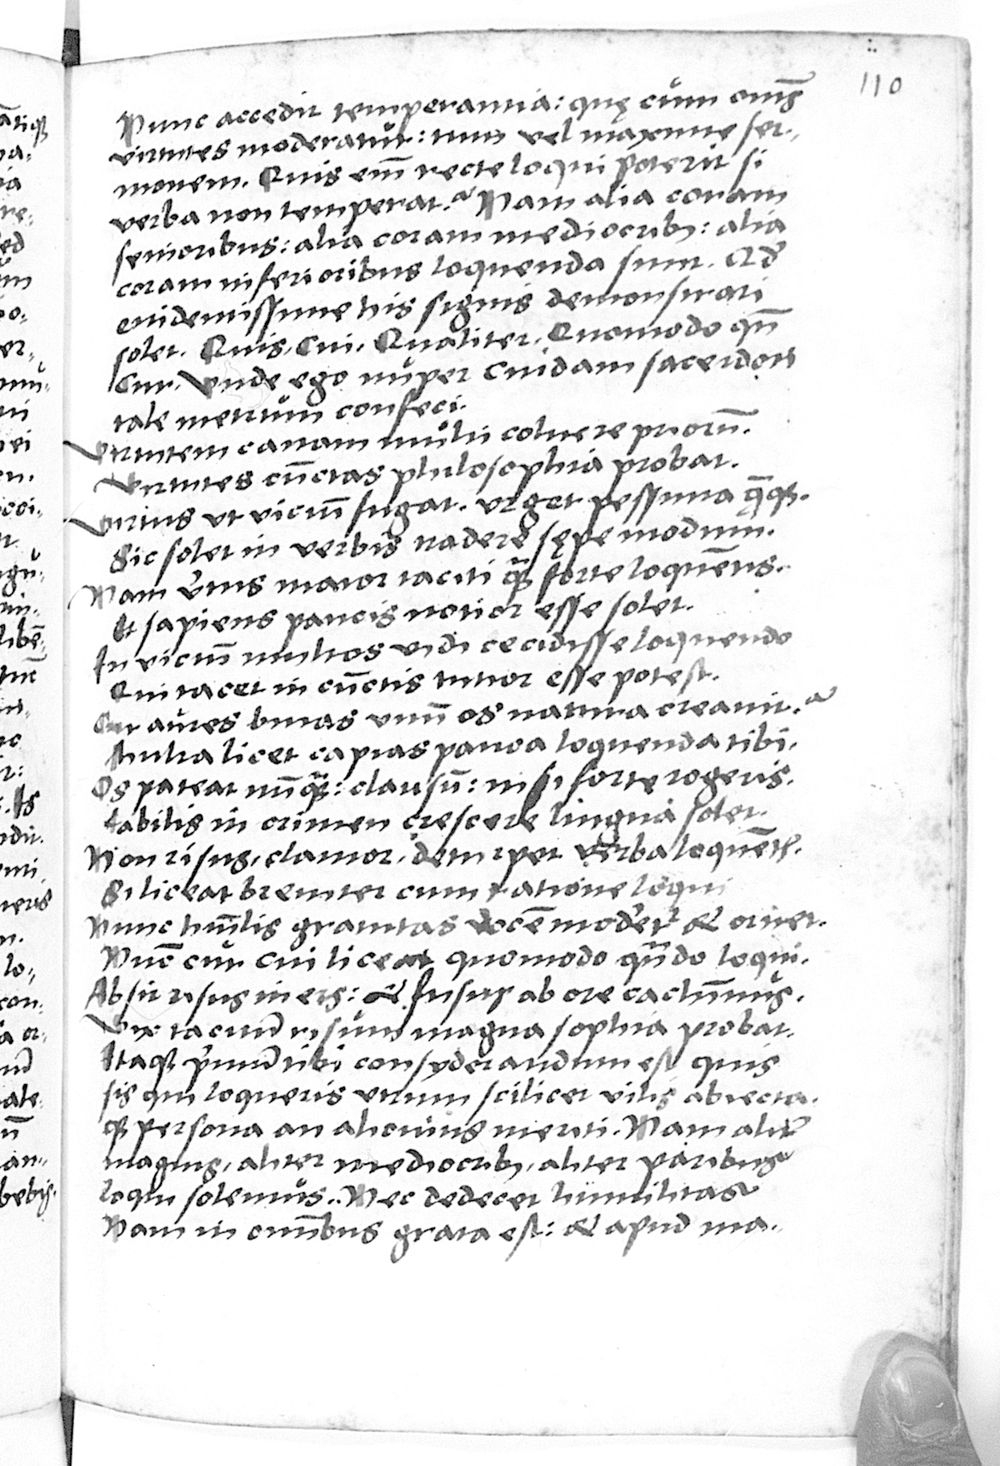 110
Nunc accedit temperantia: quę cum om̄s
virtutes moderatur: tum vel maxime ser-
monem. Quis em̄ recte loqui poterit si
verba non temperat? Nam alia coram
senioribus: alia coram mediocrib;: alia
coram inferioribus loquenda sunt. Qd'
euidentissime his signis demonstrari
solet. Quis, Cui, Qualiter, Quomodo qn̄
Cur, Vnde ego nuper Cuidam sacerdoti
tale metrum confeci.
Virtutem canam multi coluere priorū.
Virtutes cūctas philosophia probat.
Virtus vt viciū fugat. vrget pessima q̄q;.
Sic solet in verbis tradere sępe modum.
Nam v̓tus maior taciti q̄ forte loquētis.
Et sapiens paucis notior esse solet.
In viciū multos vidi cecidisse loquendo
Qui tacet in cūctis tutior esse potest.
Cur aures binas vnū os natura creauit?
Multa licet capias pauca loquenda tibi.
Os pateat nūq̄: clausū: nisi forte rogeris.
Labilis in crimen crescere lingua solet.
Non risus, clamor, deturpet verba loquēt̓.
Si liceat breuiter cum ratione loqui
Nunc hūilis grauitas vocē moder̓ & ornet.
Nūc cur cui liceat quomodo qn̄do loqui.
Absit risus iners: & fusus ab ore cachinnus.
Vix tacitū risum magna sophia probat.
Itaq; p̓mū tibi consyderandum est quis
sis qui loqueris vtrum scilicet vilis abiecta-
q; persona an alicuius meriti. Nam alit̓
magnis, aliter mediocrib;, aliter paribus
loqui solemus. Nec dedecet humilitas
Nam in omībus grata est: & apud ma-